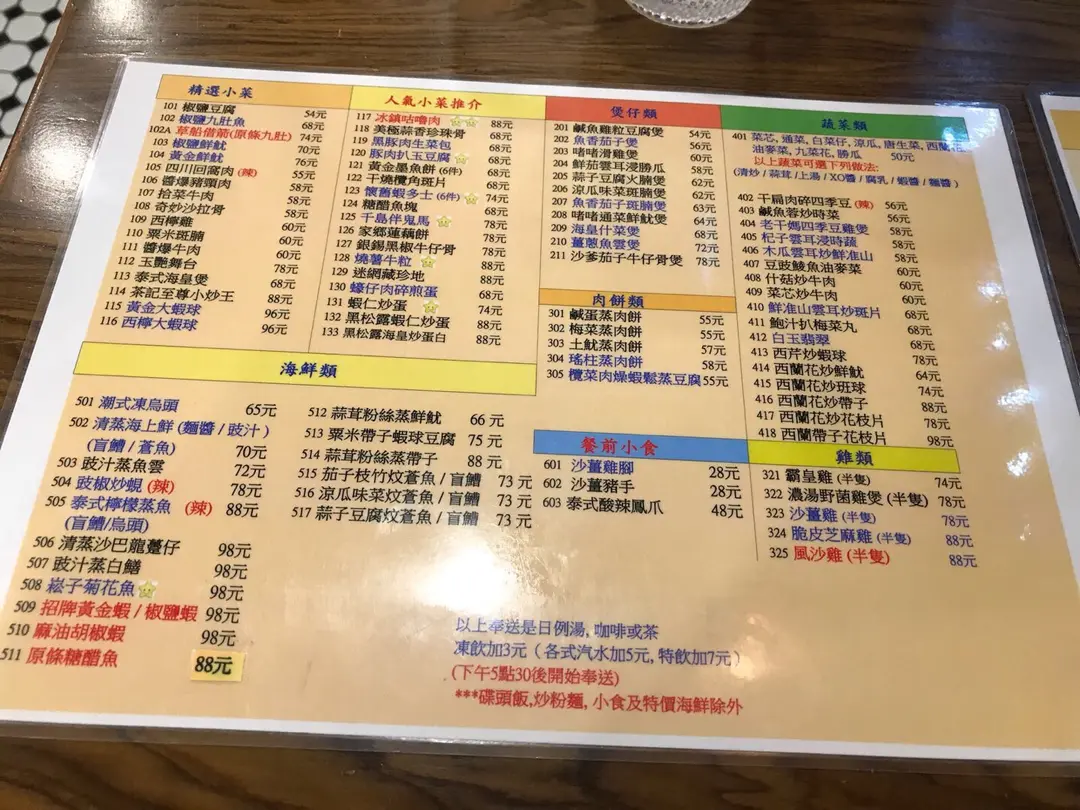 精選小菜
101 椒鹽豆腐 54元
102 椒鹽九肚魚 68元
102A 草船借箭(原條九肚) 74元
103 椒鹽鮮魷 70元
104 黃金鮮魷 76元
105 四川回窩肉 (辣) 55元
106 醬爆豬頸肉 58元
107 拾菜牛肉 58元
108 奇妙沙拉骨 58元
109 西檸雞 60元
110 粟米斑腩 60元
111 醬爆牛肉 60元
112 玉艷舞台 78元
113 泰式海皇煲 68元
114 茶記至尊小炒王 88元
115 黃金大蝦球 96元
116 西檸大蝦球 96元
人氣小菜推介
117 冰鎮咕嚕肉 88元
118 美極蒜香珍珠骨 68元
119 黑豚肉生菜包 68元
120 豚肉扒玉豆腐 68元
121 黃金墨魚餅 (6件) 68元
122 干燒欖角斑片 68元
123 懷舊蝦多士 (6件) 74元
124 糖醋魚塊 68元
125 千島伴鬼馬 78元
126 家鄉蓮藕餅 78元
127 銀錫黑椒牛仔骨 78元
128 燒薯牛粒 88元
129 迷網藏珍地 88元
130 蠔仔肉碎煎蛋 68元
131 蝦仁炒蛋 74元
132 黑松露蝦仁炒蛋 88元
133 黑松露海皇炒蛋白 88元
煲仔類
201 鹹魚雞粒豆腐煲 54元
202 魚香茄子煲 56元
203 啫啫滑雞煲 60元
204 鮮茄雲耳浸勝瓜 58元
205 蒜子豆腐火腩煲 62元
206 涼瓜味菜斑腩煲 62元
207 魚香茄子斑腩煲 63元
208 啫啫通菜鮮魷煲 64元
209 海皇什菜煲 68元
210 薑蔥魚雲煲 72元
211 沙爹茄子牛仔骨煲 78元
肉餅類
301 鹹蛋蒸肉餅 55元
302 梅菜蒸肉餅 55元
303 土魷蒸肉餅 57元
304 瑤柱蒸肉餅 58元
305 欖菜肉燥蝦鬆蒸豆腐 55元
蔬菜類
401 菜芯, 通菜, 白菜仔, 涼瓜, 唐生菜, 西蘭
油麥菜, 九菜花, 勝瓜 50元
以上蔬菜可選下列做法:
(清炒 / 蒜茸 / 上湯 / XO醬 / 腐乳 / 蝦醬 / 麵醬 )
402 干扁肉碎四季豆 (辣) 56元
403 鹹魚蓉炒時菜 56元
404 老干媽四季豆雞煲 58元
405 杞子雲耳浸時蔬 58元
406 木瓜雲耳炒鮮准山 58元
407 豆豉鯪魚油麥菜 60元
408 什菇炒牛肉 60元
409 菜芯炒牛肉 60元
410 鮮准山雲耳炒斑片 68元
411 鮑汁扒梅菜丸 68元
412 白玉翡翠 68元
413 西芹炒蝦球 78元
414 西蘭花炒鮮魷 64元
415 西蘭花炒班球 74元
416 西蘭花炒帶子 88元
417 西蘭花炒花枝片 78元
418 西蘭帶子花枝片 98元
海鮮類
501 潮式凍烏頭 65元
502 清蒸海上鮮 (麵醬 / 豉汁 )
(盲鰽 / 倉魚) 70元
503 豉汁蒸魚雲 72元
504 豉椒炒蜆 (辣) 78元
505 泰式檸檬蒸魚 (辣) 88元
(盲鰽/烏頭)
506 清蒸沙巴龍躉仔 98元
507 豉汁蒸白鱔 98元
508 崧子菊花魚 98元
509 招牌黃金蝦 / 椒鹽蝦 98元
510 麻油胡椒蝦 98元
511 原條糖醋魚 88元
512 蒜茸粉絲蒸鮮魷 66 元
513 粟米帶子蝦球豆腐 75 元
514 蒜茸粉絲蒸帶子 88 元
515 茄子枝竹炆倉魚 / 盲鰽 73 元
516 涼瓜味菜炆倉魚 / 盲鰽 73 元
517 蒜子豆腐炆倉魚 / 盲鰽 73 元
餐前小食
601 沙薑雞腳 28元
602 沙薑豬手 28元
603 泰式酸辣鳳爪 48元
雞類
321 霸皇雞 (半隻) 74元
322 濃湯野菌雞煲 (半隻) 78元
323 沙薑雞 (半隻) 78元
324 脆皮芝麻雞 (半隻) 88元
325 風沙雞 (半隻) 88元
以上奉送是日例湯, 咖啡或茶
凍飲加3元 ( 各式汽水加5元, 特飲加7元 )
(下午5點30後開始奉送)
***碟頭飯,炒粉麵, 小食及特價海鮮除外